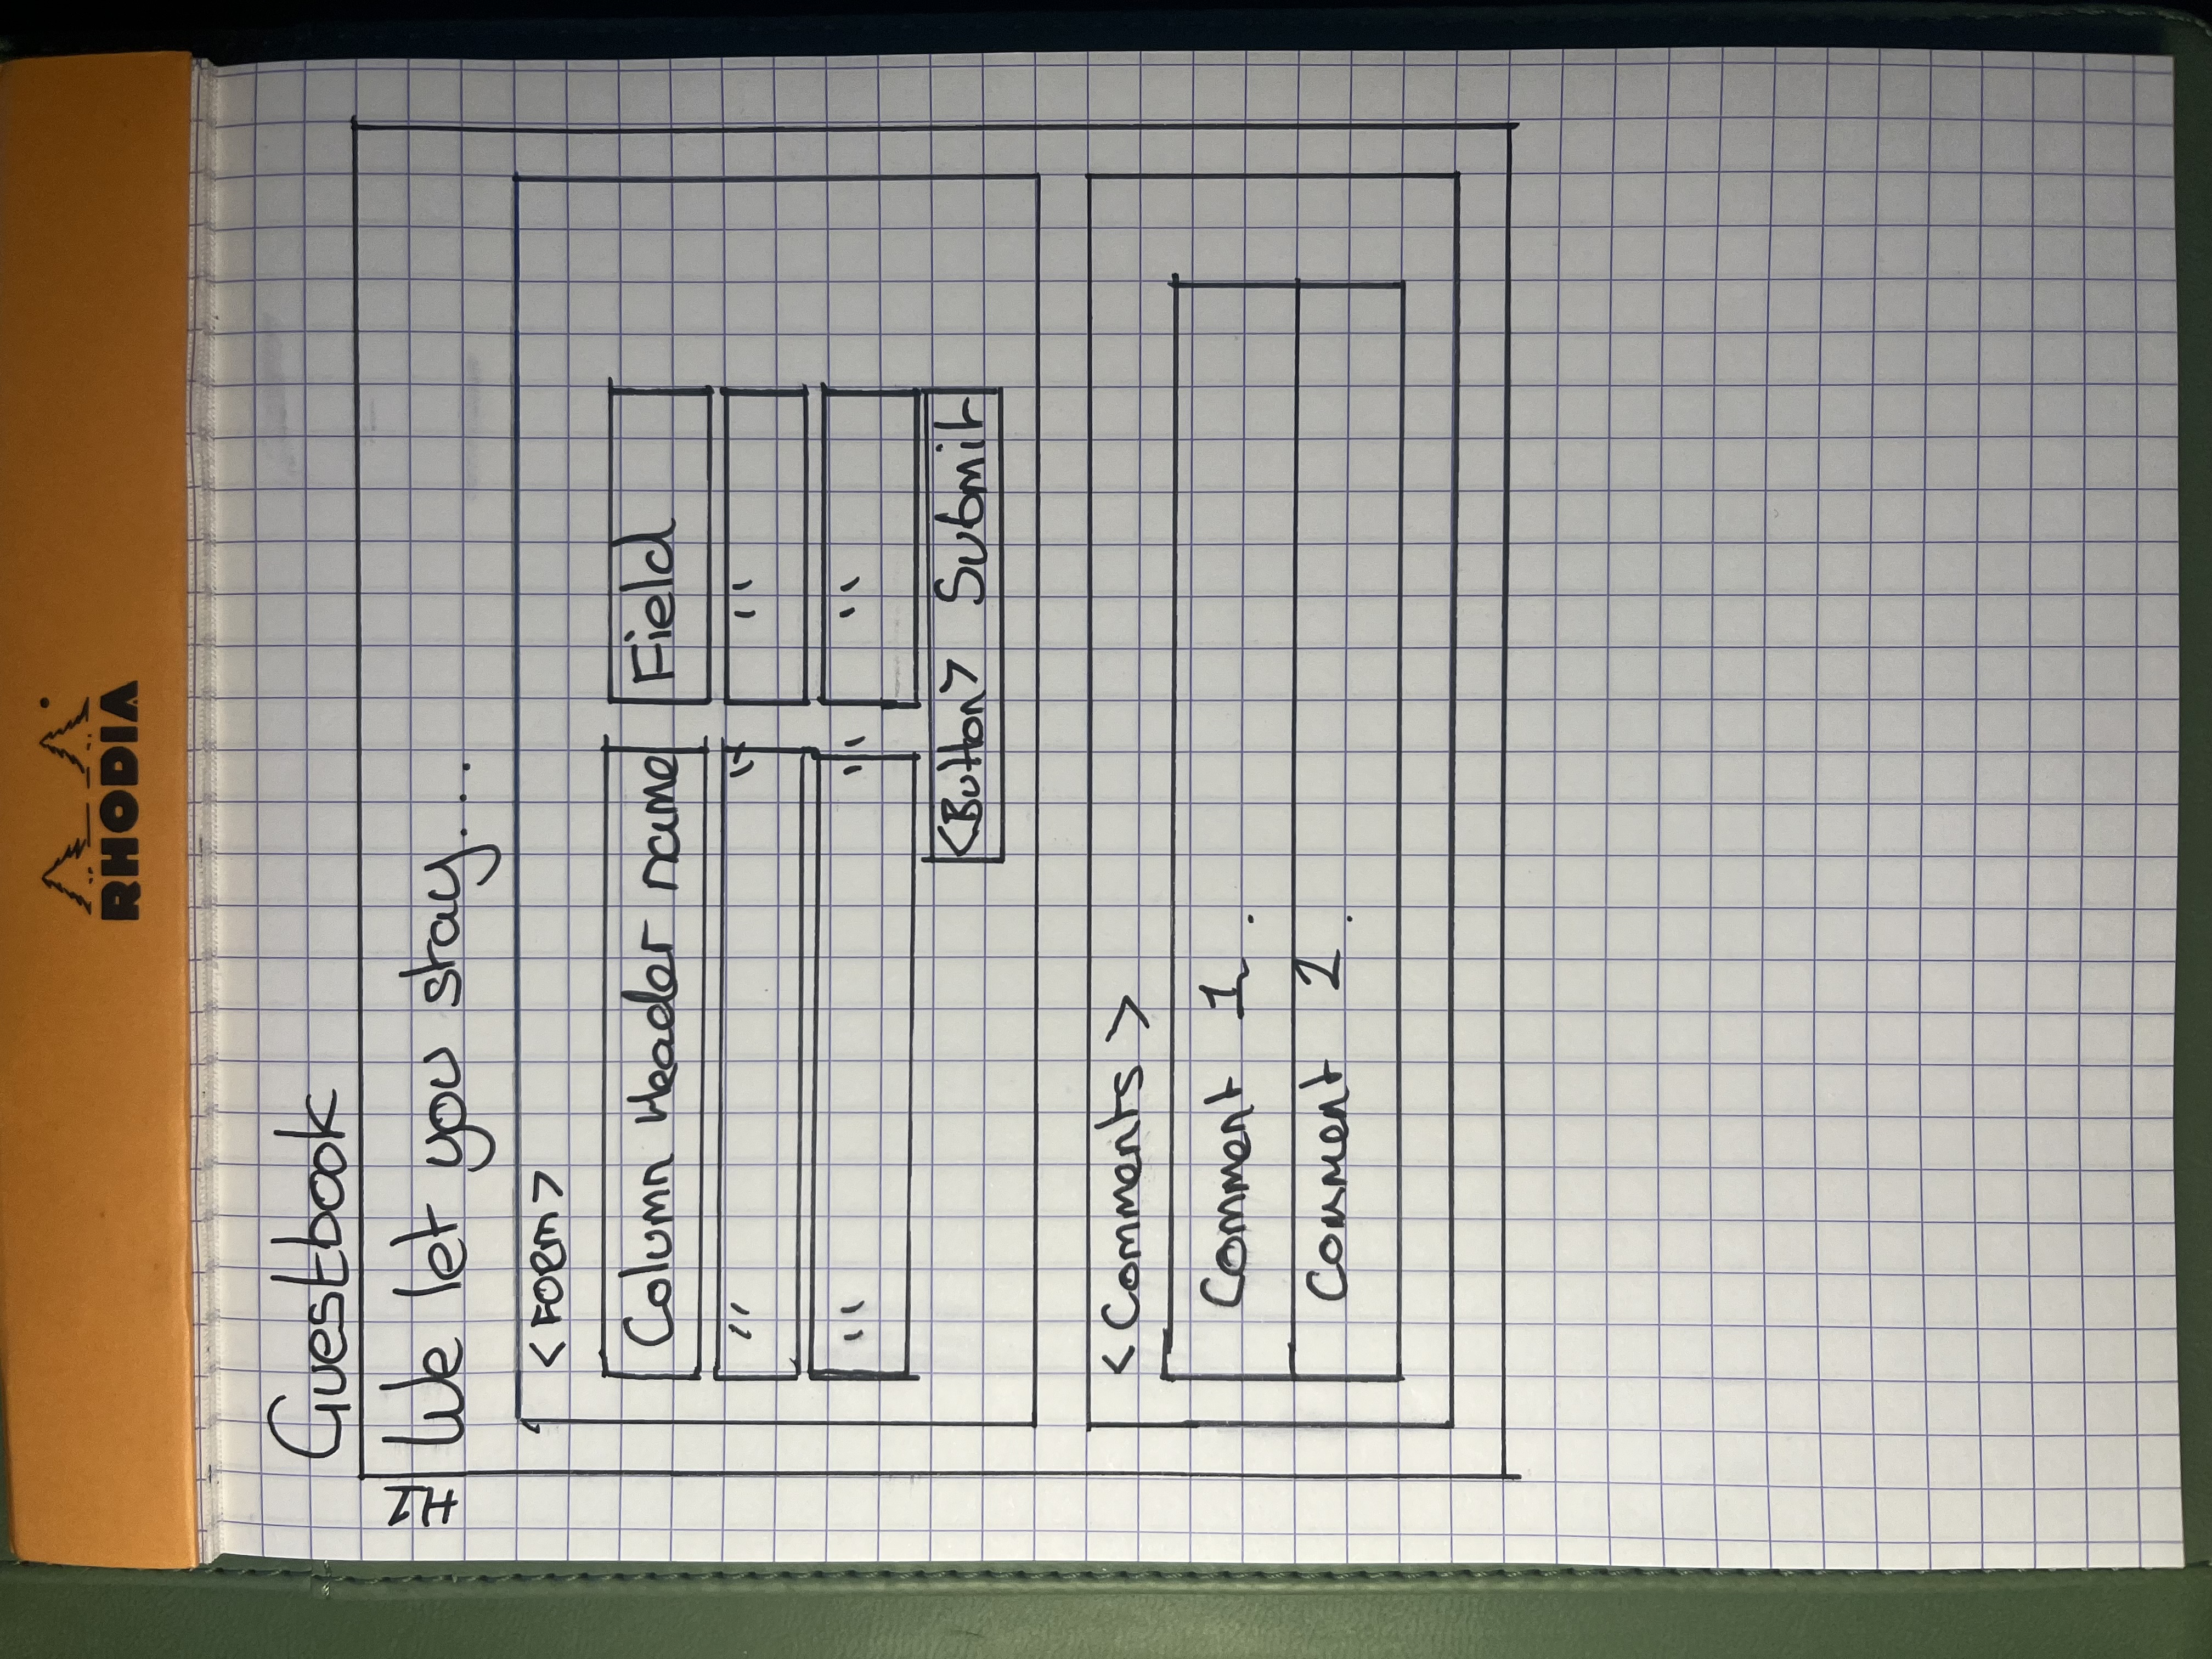 RHODIA
Guestbook
H1
We let you stay...
<FORM>
Column Header name Field
" " "
" " "
<Button> Submit
<Comments>
Comment 1.
Comment 2.